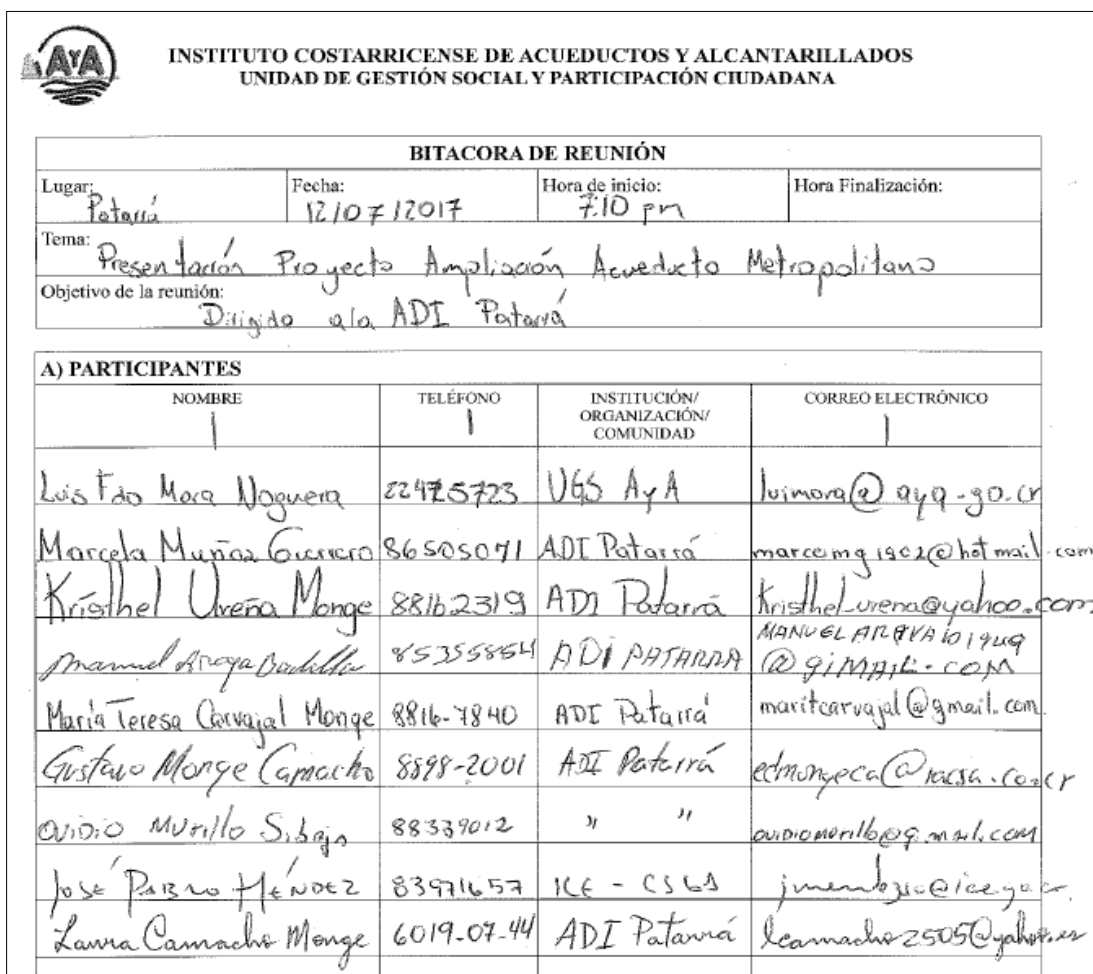 AyA
INSTITUTO COSTARRICENSE DE ACUEDUCTOS Y ALCANTARILLADOS
UNIDAD DE GESTIÓN SOCIAL Y PARTICIPACIÓN CIUDADANA
BITACORA DE REUNIÓN
Lugar: Patarrá Fecha: 12/07/2017 Hora de inicio: 7:10 pm Hora Finalización:
Tema: Presentación Proyecto Ampliación Acueducto Metropolitano
Objetivo de la reunión:
Dirigido a la ADI Patarrá
A) PARTICIPANTES
NOMBRE TELÉFONO INSTITUCIÓN/ ORGANIZACIÓN/ COMUNIDAD CORREO ELECTRÓNICO
Luis Fdo Mora Noguera 22425723 UGS AyA luimora@aya.go.cr
Marcela Muñoz Guerrero 86505071 ADI Patarrá marcemg1902@hotmail.com
Kristhel Ureña Monge 88162319 ADI Patarrá Kristhel_urena@yahoo.com
Manuel Araya Badilla 85355854 ADI PATARRA @GIMAIL.COM
María Teresa Carvajal Monge 8816-7840 ADI Patarrá maritcarvajal@gmail.com
Gustavo Monge Camacho 8898-2001 ADI Patarrá edmongeca@racsa.co.cr
OVIDIO Murillo Sibaja 88339012 " " ovidiomurillo@g.mail.com
José PABLO MÉNDEZ 83971657 ICE -
Laura Camacho Monge 6019-07-44 ADI Patarrá lcamacho2505@yahoo.es